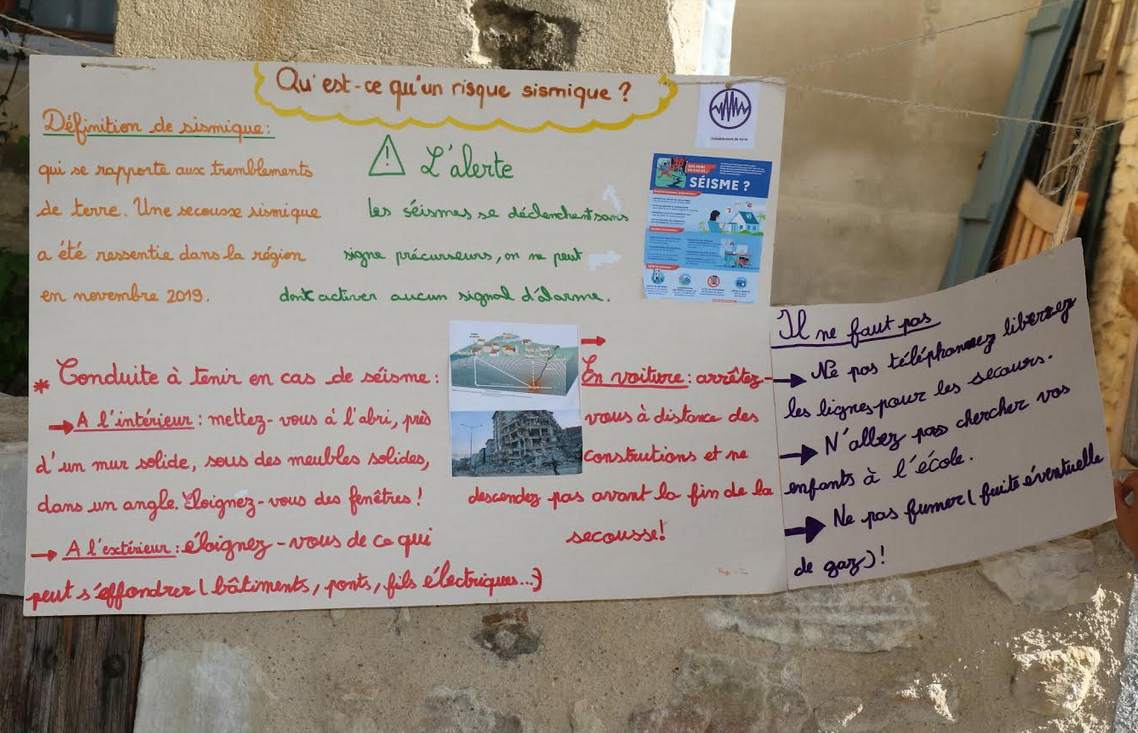 Qu'est-ce qu'un risque sismique ?
Définition de sismique :
qui se rapporte aux tremblements
de terre. Une secousse sismique
a été ressentie dans la région
en novembre 2019.
L'alerte
les séismes se déclenchent sans
signe précurseurs, on ne peut
dont activer aucun signal d'alarme.
SÉISME ?
* Conduite à tenir en cas de séisme :
A l'intérieur : mettez-vous à l'abri, près
d'un mur solide, sous des meubles solides,
dans un angle. Eloignez-vous des fenêtres !
A l'extérieur : éloignez-vous de ce qui
peut s'éffondrer ( bâtiments, ponts, fils électriques...)
En voiture : arrêtez-
vous à distance des
construtions et ne
descendez pas avant la fin de la
secousse!
Il ne faut pas
Ne pas téléphonnez liberzez
les lignes pour les secours.
N'allez pas chercher vos
enfants à l'école.
Ne pas fumer ( fuite éventuelle
de gaz)!